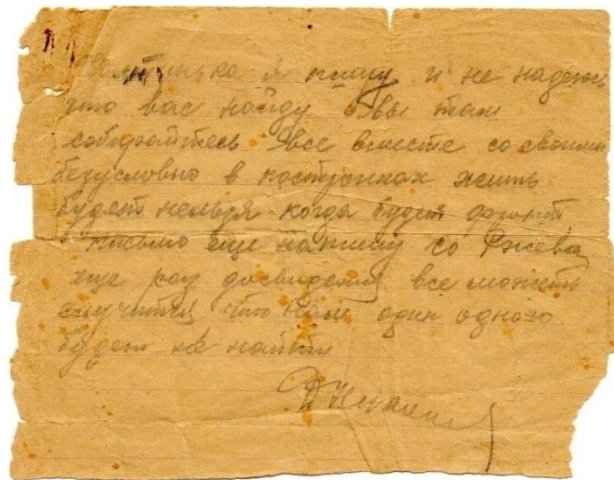 я пишу и не надеюсь
что вас найду а вы там
собирайтесь все вместе со своими
безусловно в постройках жить
будет нельзя когда будет фронт
письмо еще напишу со Ржева
еще раз досвидения все может
случится что нам один одного
будет не найти